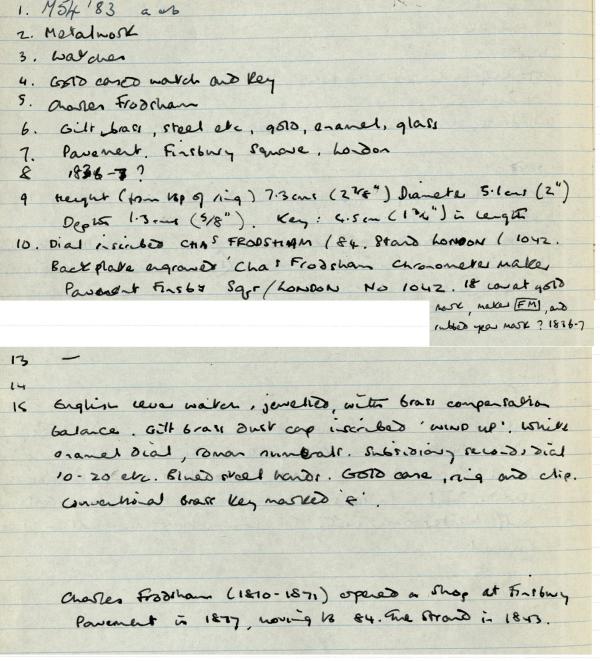 1. M54 '83 a & b
2. Metalwork
3. Watches
4. Gold cased watch and key
5. Charles Frodsham
6. Gilt brass, steel etc, gold, enamel, glass
7. Pavement. Finsbury Square. London
8 1836-7 ?
9 Height (from top of ring) 7.3 cms (2 7/8") Diameter 5.1 cms (2")
Depth 1.3 cms (5/8"). Key: 4.5 cm (1 3/4") in length
10. Dial inscribed CHAS FRODSHAM / 84. Strand LONDON / 1042.
Backplate engraved 'Chas Frodsham Chronometer Maker
Pavement Finsby Sqre / LONDON No 1042. 18 carat gold
mark, maker FM, and
rubbed year mark ? 1836-7
13 —
14
15 English lever watch, jewelled, with brass compensation
balance. Gilt brass dust cap inscribed 'WIND UP'. White
enamel dial, roman numerals. Subsidiary seconds dial
10-20 etc. Blued steel hands. Gold case, ring and clip.
Conventional brass key marked '8'.
Charles Frodsham (1810-1871) opened a shop at Finsbury
Pavement in 1837, moving to 84. The Strand in 1843.